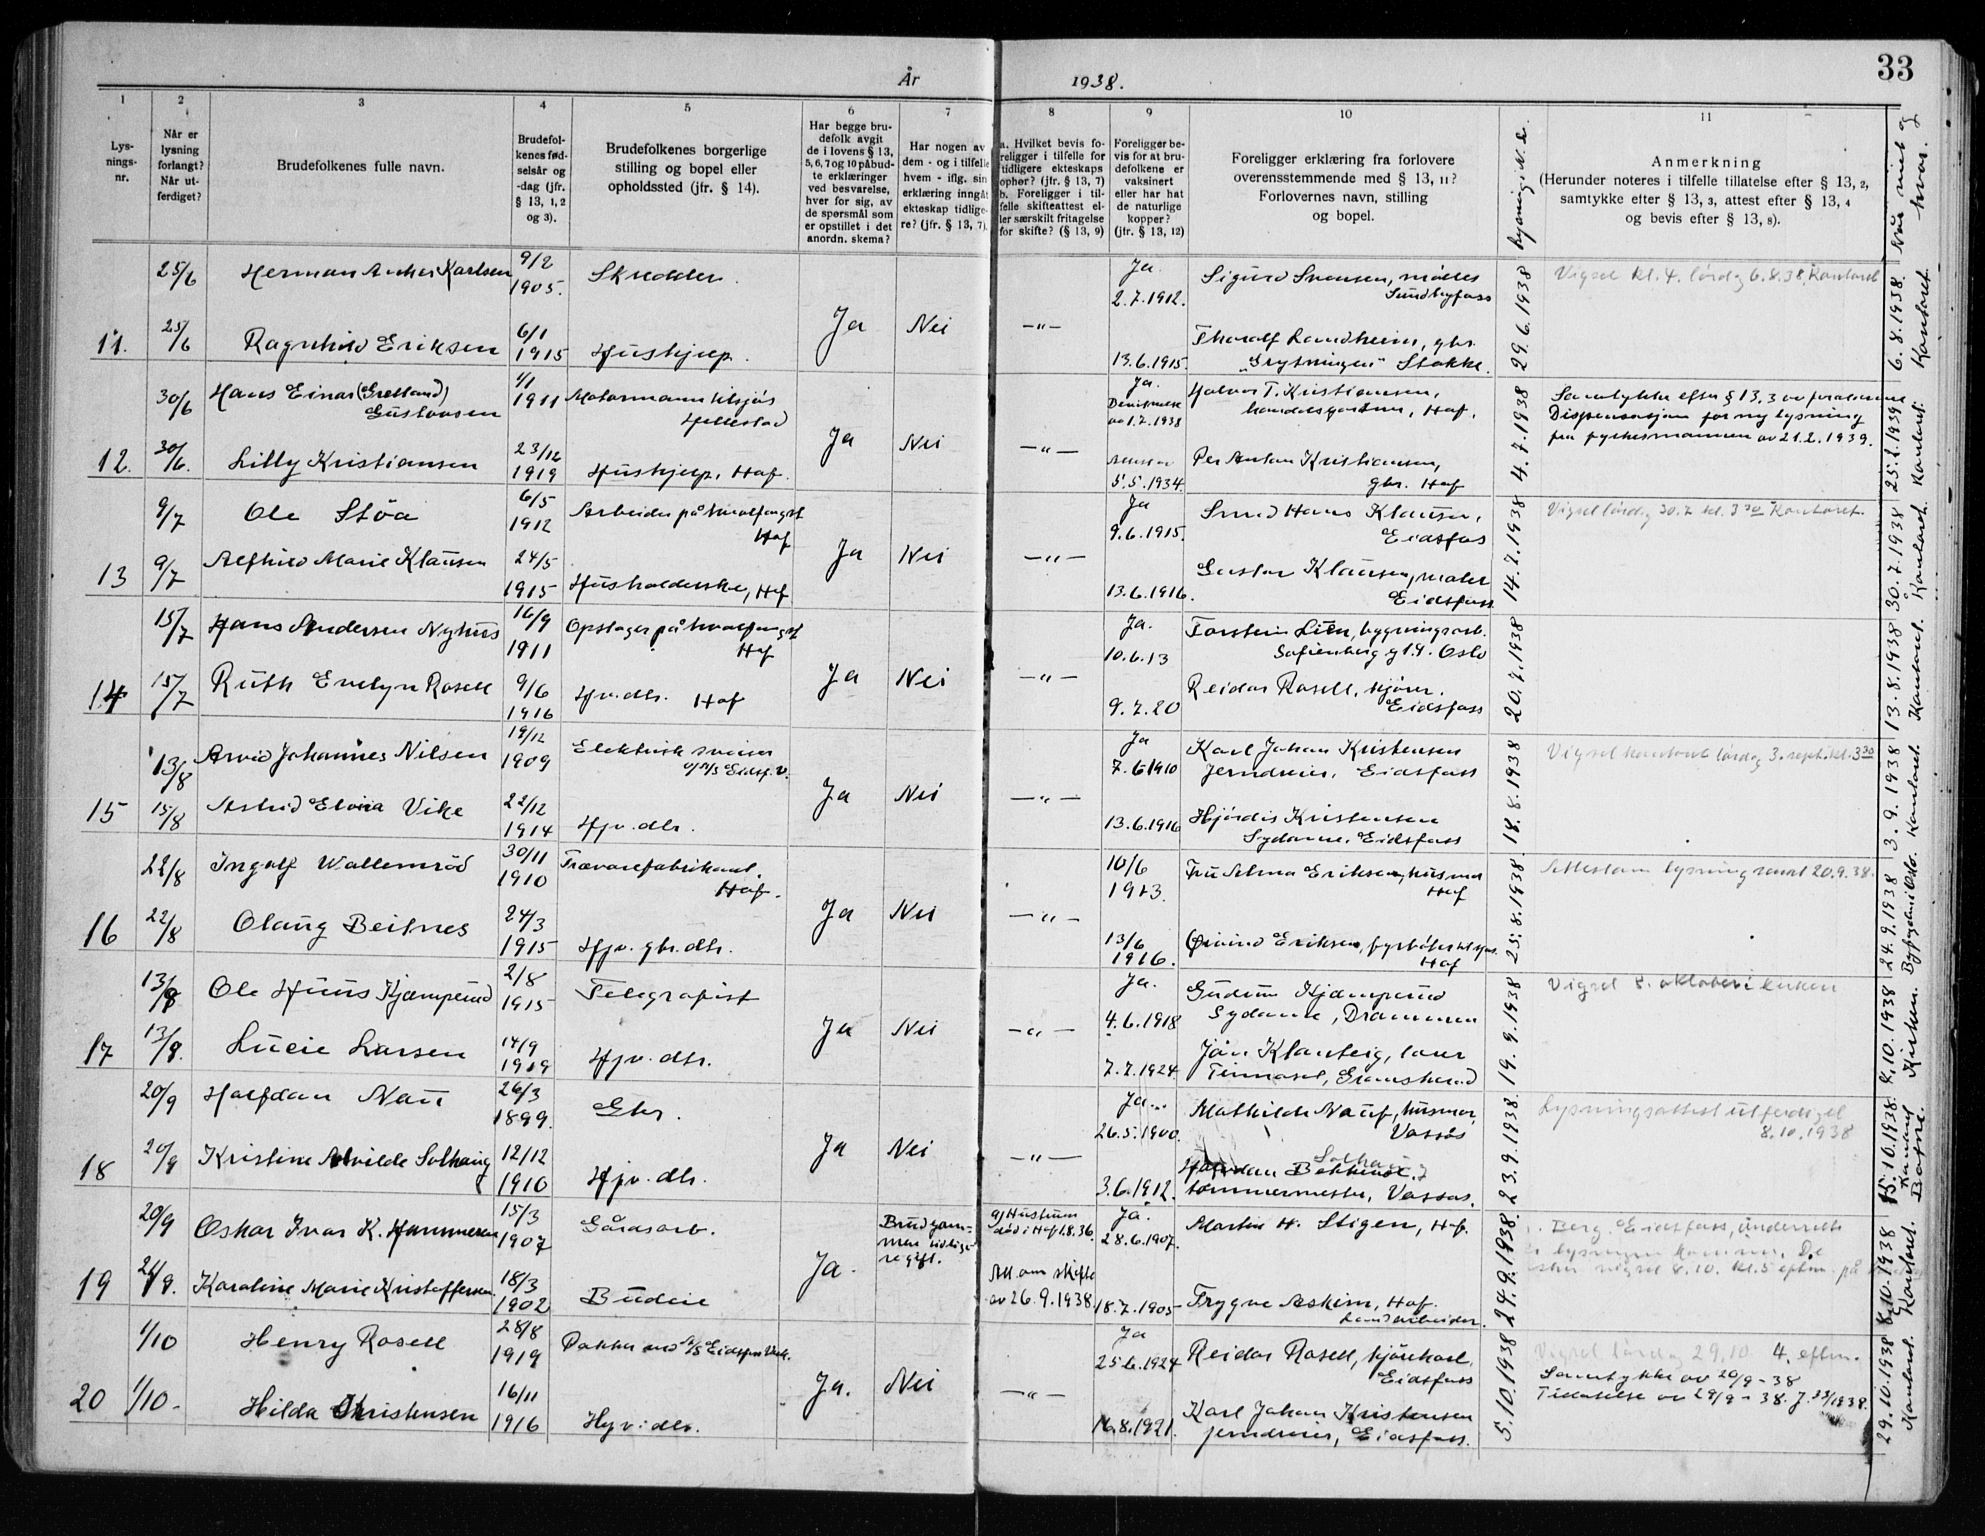 33
År 1938.
1 2 3 4 5 6 7 8 9 10 11
Lys-
nings-
nr.
Når er
lysning
forlangt?
Når ut-
ferdiget?
Brudefolkenes fulle navn.
Brudefol-
kenes fød-
selsår og
-dag (jfr.
§ 13, 1, 2
og 3).
Brudefolkenes borgerlige
stilling og bopel eller
opholdssted (jfr. § 14).
Har begge bru-
defolk avgit
de i lovens § 13,
5, 6, 7 og 10 påbud-
te erklæringer
ved besvarelse,
hver for sig, av
de spørsmål som
er opstillet i det
anordn. skema?
Har nogen av
dem - og i tilfelle
hvem - iflg. sin
erklæring inngåt
ekteskap tidlige-
re? (jfr. § 13, 7).
a. Hvilket bevis fo-
religger i tilfelle for
tidligere ekteskaps
ophør? (jfr. § 13, 7)
b. Foreligger i til-
felle skifteattest el-
ler særskilt fritagelse
for skifte? (§ 13, 9)
Foreligger be-
vis for at bru-
defolkene er
vaksinert
eller har hat
de naturlige
kopper?
(jfr. § 13, 12)
Foreligger erklæring fra forlovere
overensstemmende med § 13, 11?
Forlovernes navn, stilling
og bopel.
Anmerkning
(Herunder noteres i tilfelle tillatelse efter § 13, 2,
samtykke efter § 13, 3, attest efter § 13, 4
og bevis efter § 13, 8).
Når viet og hvor.
25/6 Herman Karlsen 9/2 1905. Skredder. Ja. 2.7.1912. Sigurd Svensen,
Sundbyfoss
Vigsel kl. 4. lørdag 6.8.38, Kontoret
11. 25/6 Ragnhild Eriksen 6/1 1915 Hushjelp. Ja Nei —"— 13.6.1915. gbr.
Stokke.
29.6.1938 6.8.1938. Kontoret.
30/6 Hans Einar (Grelland)
Gustavsen 1/1 1911 Motormann tilsjøs
Hillestad Ja. av 1.7.1938 T. Kristiansen,
Hof.
Samtykke efter § 13,3 av foreldrene
Dispensasjon for ny lysning
fra fylkesmannen av 21.2.1939.
12. 30/6. Lilly Kristiansen 23/12 1919 Hushjelp, Hof. Ja Nei —"— 5.5.1934. Per Anton Kristiansen,
gbr. Hof
4.7.1938 25.2.1939 Kontoret.
9/7 Ole Støa 6/5 1912 Arbeider på hvalfangst
Hof Ja 9.6.1915. Hans Klausen,
Eidsfos
Vigsel lørdag 30.7 kl. 3 30 Kontoret.
13 9/7 Alfhild Marie Klausen 24/5 1915 Husholderske, Hof Ja Nei —"— 13.6.1916. Gustav Klausen, maler
Eidsfoss
14.7.1938 30.7.1938 Kontoret.
15/7 Hans Andersen Nyhus 16/9 1911 Opslager på hvalfangst
Hof Ja. 10.6.13 Torstein Lien, bygningsarb.
Sofienberg g 14. Oslo
14 15/7 Ruth Evelyn Rosell 9/6 1916 Hjv. dtr. Hof Ja Nei —"— 9.7.20 Reidar Rosell, kjører.
Eidsfoss
20.7.1938 13.8.1938 Kontoret.
13/8 Arvid Johannes Nilsen 19/12 1909 Elektrisk sveiser
v/ A/S Eidsf. V. Ja 7.6.1910 Karl Johan Kristensen
Jerndreier, Eidsfoss
Vigsel kontoret lørdag 3. sept. kl. 3 30
15 15/8 Astrid Elvira Vike 22/12 1914 Hjv. dtr. Ja Nei —"— 13.6.1916 Hjørdis Kristensen
Sydame, Eidsfoss
18.8.1938 3.9.1938 Kontoret.
22/8 Ingolf Wallemrød 30/11 1910 Trævarefabrikant.
Hof. 10/6 1913. Fru Alma Eriksen, husmor
Hof
Attest om lysning sendt 20.9.38.
16 22/8 Olaug Beitnes 24/3 1915 Hjv. gbr. dtr. Ja Nei —"— 13/6 1916. Øivind Eriksen,
Hof
25.8.1938. 24.9.1938 Oslo.
13/9 Ole Huus Kjæmperud 2/8 1915 Telegrafist Ja. 4.6.1918 Gudrun Kjæmperud
Sydame, Drammen
Vigsel 8. oktober i kirken
17 13/9. Lucie Larsen 14/9 1919 Hjv. dtr. Ja Nei —"— 7.7.1924.
19.9.1938 8.10.1938 Kirken.
20/9 Halfdan Nauf 26/3 1899. Gbr. Ja. 26.5.1900. Mathilde Nauf, husmor,
Vassås
Lysningsattest utferdiget
8.10.1938
18 20/9 Kristine Alvilde Solhaug 12/12 1910 Hjv. dtr. Ja Nei —"— 3.6.1912. Halfdan
tømmermester, Vassås.
23.9.1938. 15.10.1938. Botne.
20/9 Oskar Ivar K. Hammeren 15/3 1907 Gårdsarb. Brudgom-
men tidlige-
re gift. a) Hustrum
død i Hof 1.8.36. Ja. 28.6.1907. Martin H. Stigen, Hof.
Berg. Eidsfoss, underrett
vigsel 8.10. kl. 5 eftm. på
19 21/9. Karoline Marie Kristoffersen 18/3 1902 Budeie Ja. Att. om skifte
av 26.9.1938. 18.7.1905 Trygve Askim, Hof.
Landarbeider.
24.9.1938. 8.10.1938 Kontoret.
1/10 Henry Rosell 28/8 1919 Pakker ved A/S Eidsfos Verk. Ja 25.6.1924 Reidar Rosell, kjørekarl.
Eidsfoss
Vigsel lørdag 29.10. 4. eftm.
Samtykke av 20/9 - 38
Tillatelse av 29/9 - 38.
20 1/10 - Hilda Kristensen 16/11 1916 Hjv. dtr. Ja. Nei —"— 16.8.1921. Karl Johan Kristensen
jerndreier, Eidsfoss.
5.10.1938 29.10.1938 Kontoret.